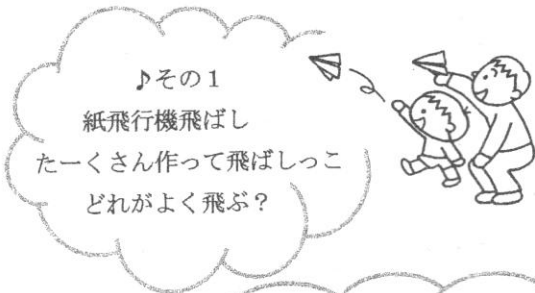 ♪その1
紙飛行機飛ばし
たーくさん作って飛ばしっこ
どれがよく飛ぶ？